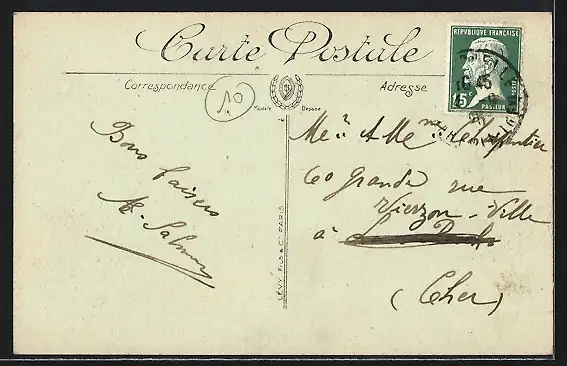 Carte Postale
Correspondance
Adresse
Modèle Déposé
10
RÉPUBLIQUE FRANÇAISE
15c
POSTES
PASTEUR
Bons baisers
LÉVY FILS & Cie PARIS
Mr & Me
60 grande rue
Vierzon-Ville
à
(Cher)